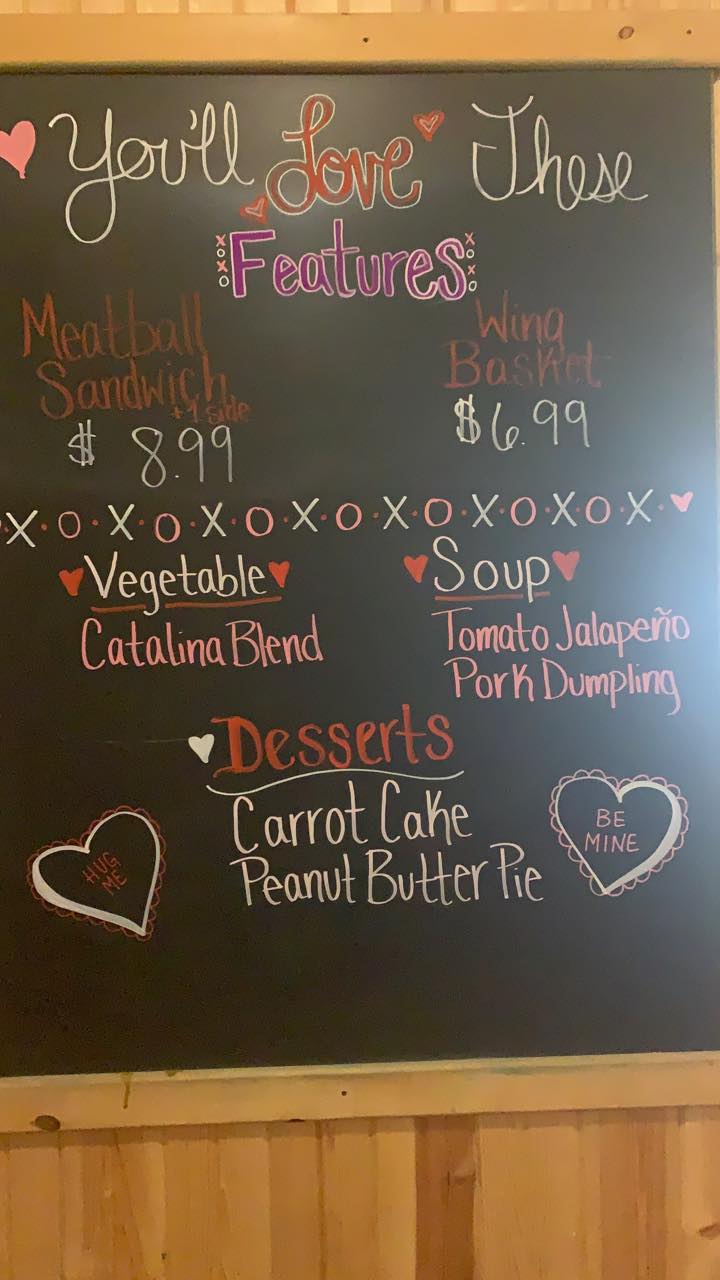 You'll Love These
Features
Meatball
Sandwich
+1 side
$ 8.99
Wing
Basket
$6.99
X O X O X O X O X O X O X O X
Vegetable
Catalina Blend
Soup
Tomato Jalapeño
Pork Dumpling
Desserts
Carrot Cake
Peanut Butter Pie
HUG
ME
BE
MINE